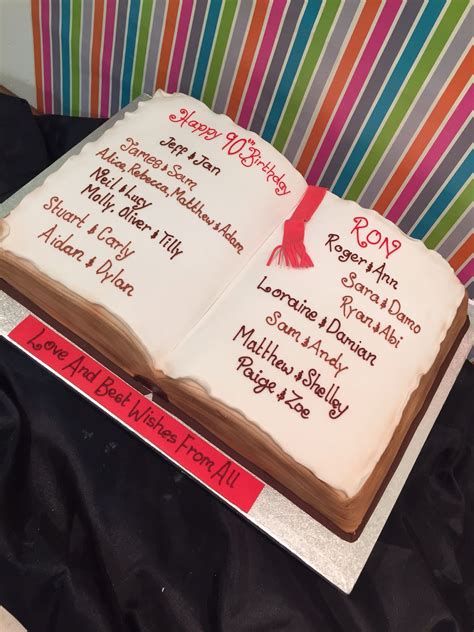 Happy 90th Birthday
Jeff & Jan
James & Sam
Alice, Rebecca, Matthew & Adam
Neil & Lucy
Molly, Oliver & Tilly
Stuart & Carly
Aidan & Dylan
RON
Roger & Ann
Sara & Damo
Ryan & Abi
Lorraine & Damian
Sam & Andy
Matthew & Shelley
Paige & Zoe
Love And Best Wishes From All